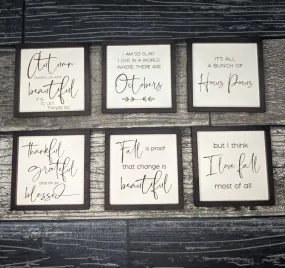 Autumn
shows us how
beautiful
it is
to let
things go
I AM SO GLAD
I LIVE IN A WORLD
WHERE THERE ARE
Octobers
IT'S ALL
A BUNCH OF
Hocus Pocus
thankful
grateful
and oh so
blessed
Fall is proof
that change is
beautiful
but i think
I love fall
most of all